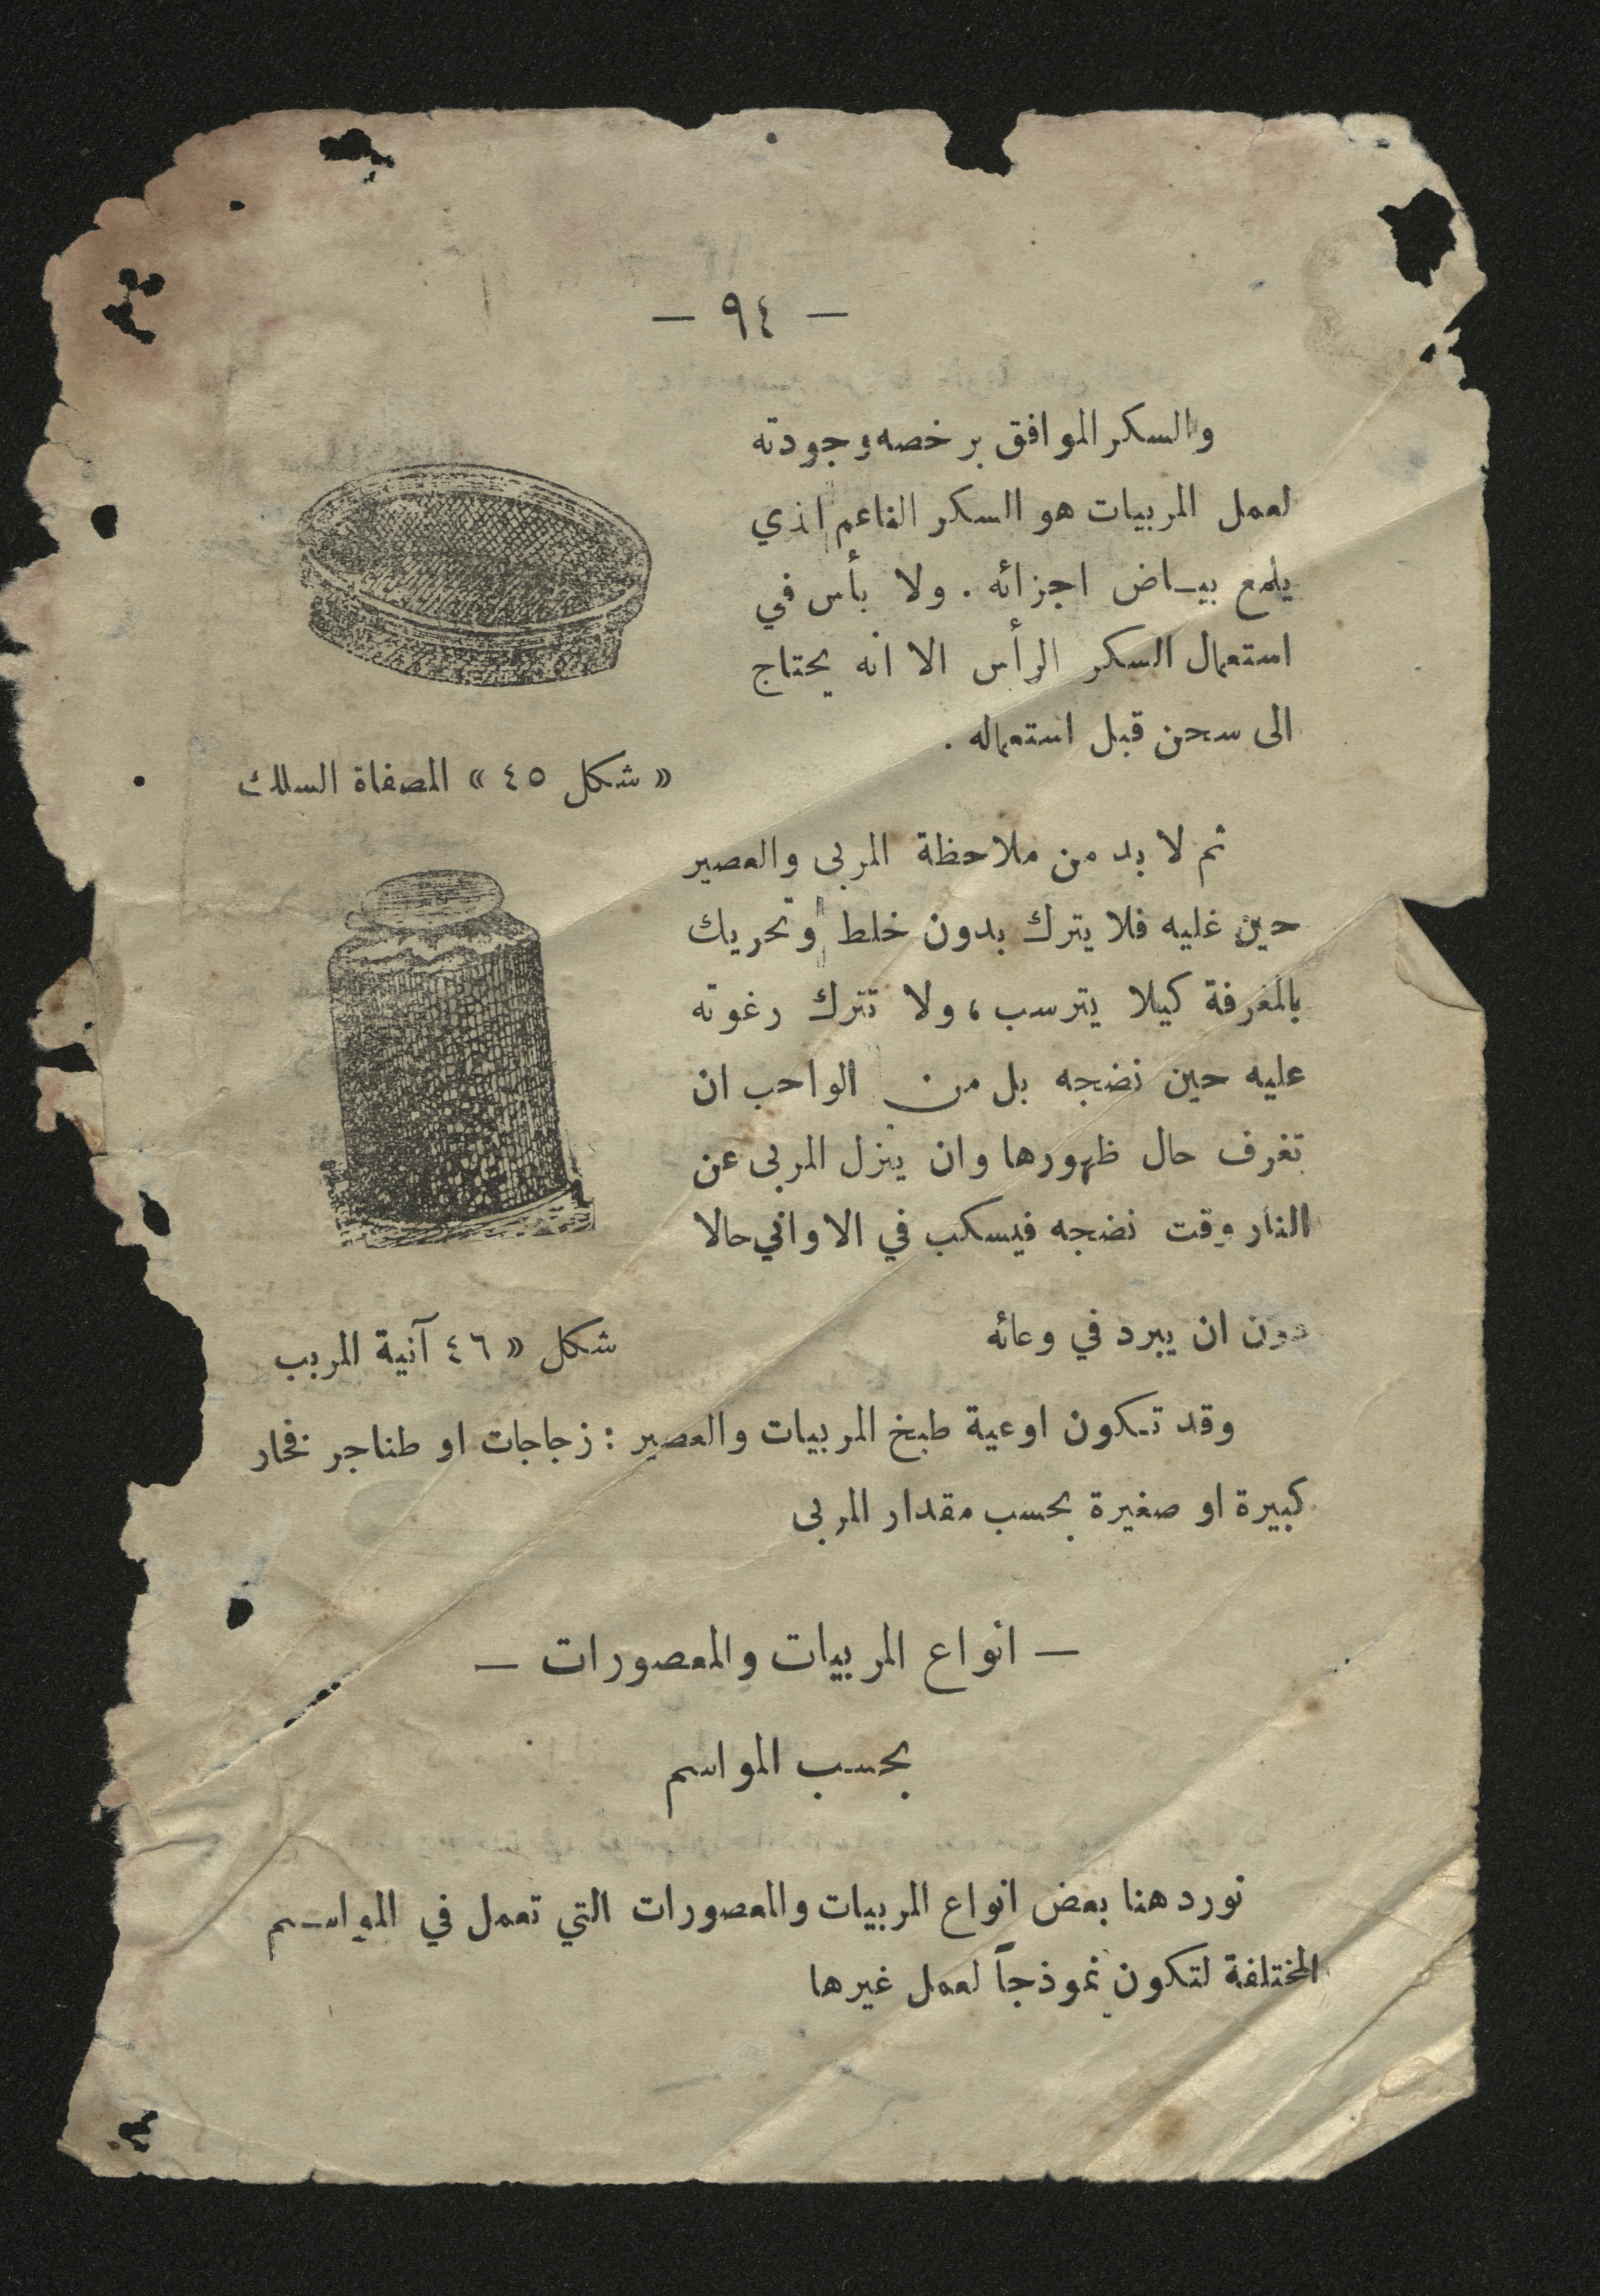 — ٩٤ —
والسكر الموافق برخصه وجودته
لعمل المربيات هو السكر الناعم الذي
يلمع بيـاض اجزائه . ولا بأس في
استعمال السكر الرأس الا انه يحتاج
الى سحن قبل استعماله .
« شكل ٤٥ » المصفاة السلك
ثم لا بد من ملاحظة المربى والعصير
حين غليه فلا يترك بدون خلط وتحريك
بالمغرفة كيلا يترسب ، ولا تترك رغوته
عليه حين نضجه بل من الواجب ان
تغرف حال ظهورها وان ينزل المربى عن
النار وقت نضجه فيسكب في الاواني حالا
دون ان يبرد في وعائه
شكل « ٤٦ آنية المربب
وقد تـكون اوعية طبخ المربيات والعصير : زجاجات او طناجر فخار
كبيرة او صغيرة بحسب مقدار المربى
— انواع المربيات والمعصورات —
بحسب المواسم
نورد هنا بعض انواع المربيات والمعصورات التي تعمل في المواسـم
المختلفة لتكون نموذجاً لعمل غيرها